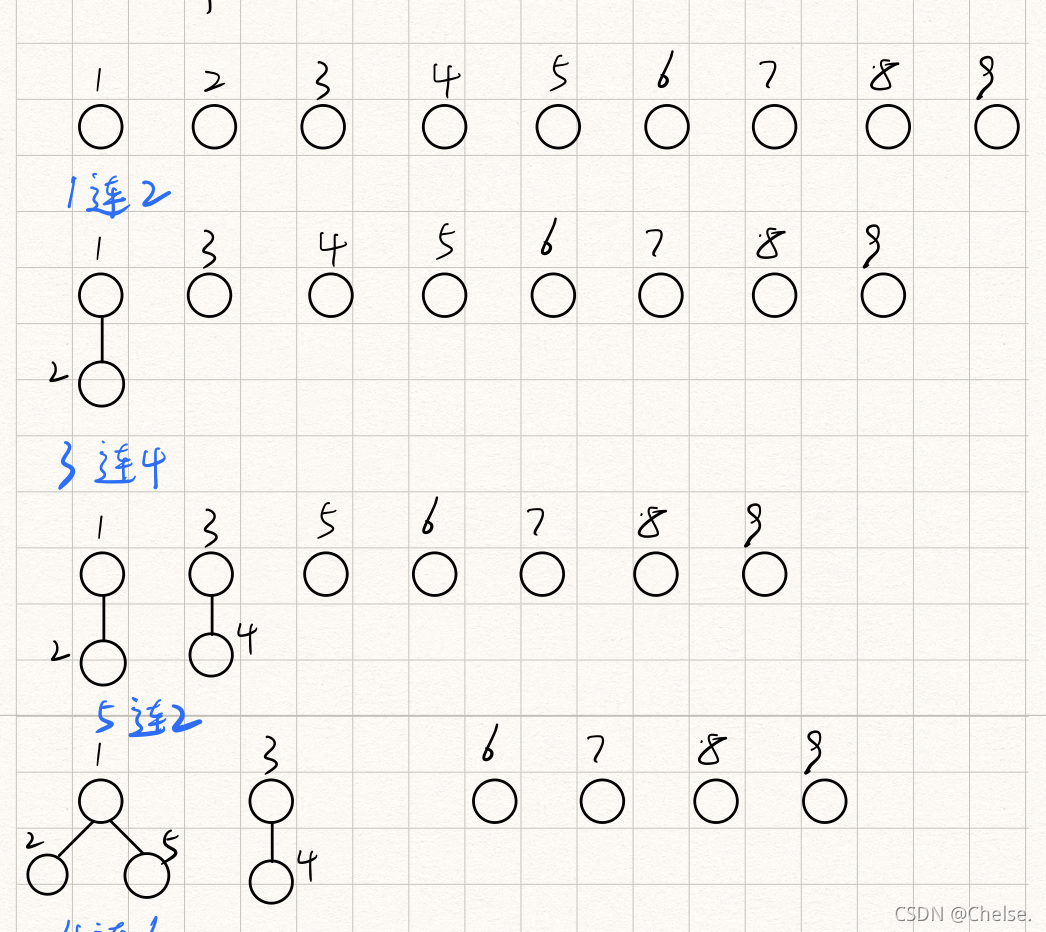 1 2 3 4 5 6 7 8 9
1连2
1 3 4 5 6 7 8 9
2
3连4
1 3 5 6 7 8 9
2 4
5连2
1 3 6 7 8 9
2 5 4
CSDN @Chelse.